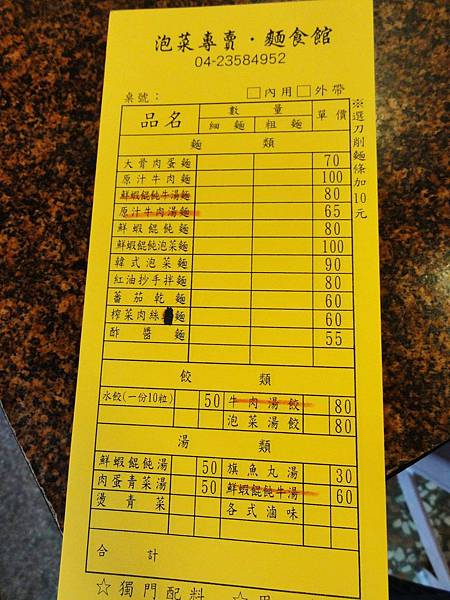 泡菜專賣·麵食館
04-23584952
桌號： □內用 □外帶
品名 數量 單價
細麵 粗麵
麵類
大骨肉蛋麵 70
原汁牛肉麵 100
鮮蝦餛飩牛湯麵 80
原汁牛肉湯麵 65
鮮蝦餛飩麵 80
鮮蝦餛飩泡菜麵 100
韓式泡菜麵 90
紅油抄手拌麵 80
蕃茄乾麵 60
榨菜肉絲 麵 60
酢醬麵 55
※選刀削麵條加10元
餃類
水餃(一份10粒) 50 牛肉湯餃 80
泡菜湯餃 80
湯類
鮮蝦餛飩湯 50 旗魚丸湯 30
肉蛋青菜湯 50 鮮蝦餛飩牛湯 60
燙青菜 各式滷味
合計
☆獨門配料 ☆